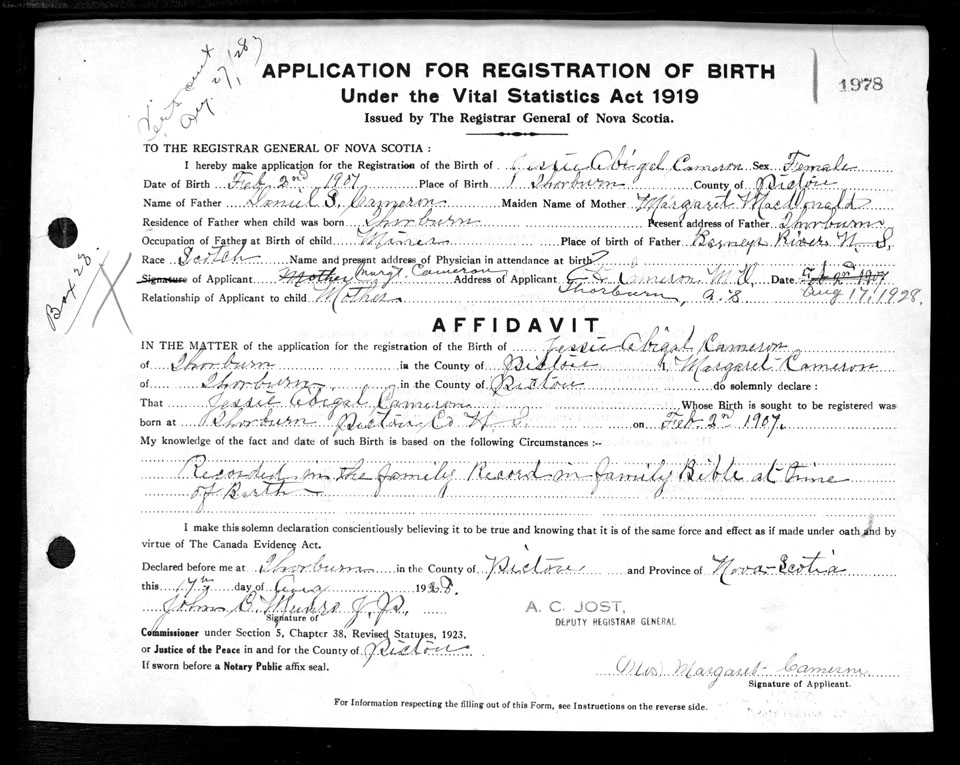 Cert. sent
Aug. 27/28
APPLICATION FOR REGISTRATION OF BIRTH
1978
Under the Vital Statistics Act 1919
Issued by The Registrar General of Nova Scotia.
TO THE REGISTRAR GENERAL OF NOVA SCOTIA :
I hereby make application for the Registration of the Birth of Jessie Abigel Cameron Sex Female
Date of Birth Feb 2nd 1907 Place of Birth Thorburn County of Pictou
Name of Father Daniel S. Cameron Maiden Name of Mother Margaret MacDonald
Residence of Father when child was born Thorburn Present address of Father Thorburn
Occupation of Father at Birth of child Miner Place of birth of Father Barneys River N. S.
Race Scotch Name and present address of Physician in attendance at birth?
Signature of Applicant Mother Margt. Cameron Address of Applicant Cameron M D, Date Feb 2nd 1907
Thorburn, N.S Aug 17, 1928.
Relationship of Applicant to child Mother
Box 28
X
AFFIDAVIT
IN THE MATTER of the application for the registration of Birth of Jessie Abigal Cameron
of Thorburn in the County of Pictou I, Margaret Cameron
of Thorburn in the County of Pictou do solemnly declare :
That Jessie Abigal Cameron Whose Birth is sought to be registered was
born at Thorburn Pictou Co N. S. on Feb 2nd 1907.
My knowledge of the fact and date of such Birth is based on the following Circumstances :--
Recorded in the family Record in family Bible at time
of Birth
I make this solemn declaration conscientiously believing it to be true and knowing that it is of the same force and effect as if made under oath and by
virtue of The Canada Evidence Act.
Declared before me at Thorburn in the County of Pictou and Province of Nova Scotia
this 17th day of Aug 1928.
John C. Munro J. P.
Signature of
A. C. JOST,
DEPUTY REGISTRAR GENERAL
Commissioner under Section 5, Chapter 38, Revised Statutes, 1923.
or Justice of the Peace in and for the County of Pictou
If sworn before a Notary Public affix seal.
Mrs Margaret Cameron
Signature of Applicant.
For Information respecting the filling out of this Form, see Instructions on the reverse side.